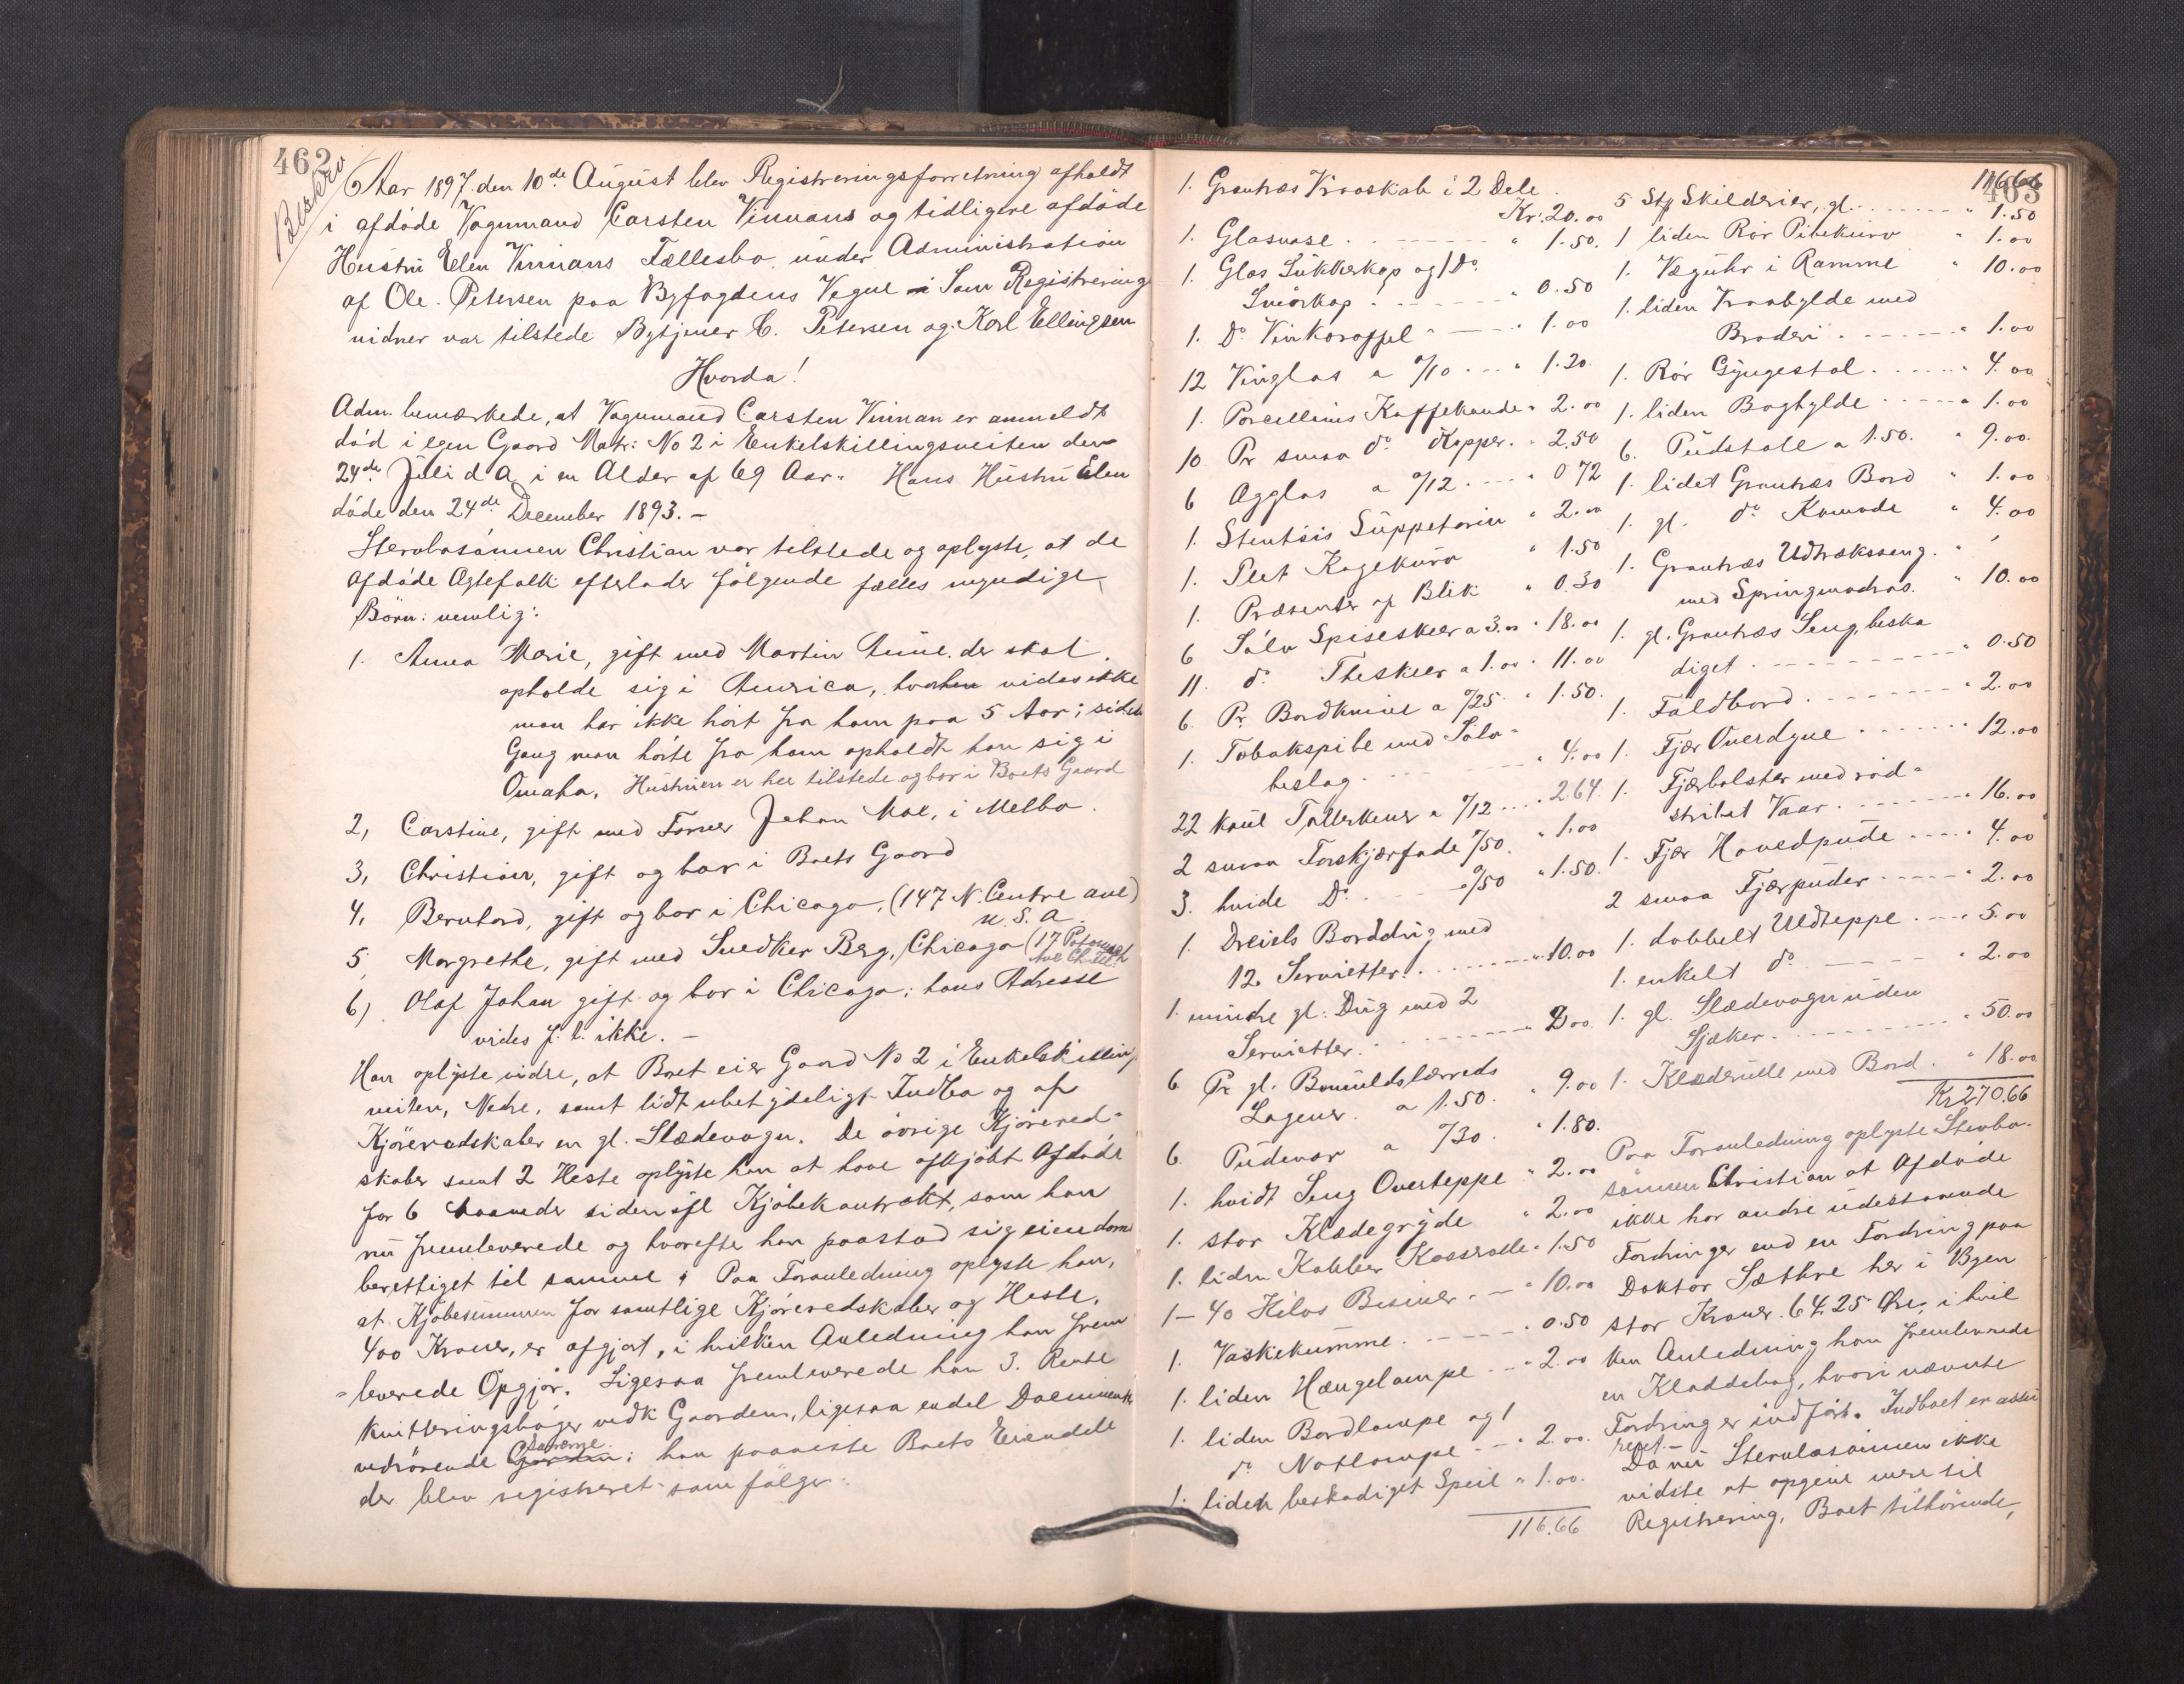 462
Beskrev
Aar 1897. den 10de August blev Registreringsforretning afholdt
i afdøde Vognmand Carsten Vinnans og tidligere afdøde
Hustru Elen Vinnans Fællesbo under Administration
af Ole. Petersen paa Byfogdens Vegne Som Registrerings
vidner var tilstede Bytjener C. Petersen og Karl Ellingsen
Hvorda!
Adm. bemærkede, at Vognmand Carsten Vinnan er anmeldt
død i egen Gaard Matr: No 2 i Enkelskillingsveiten den
24de Juli d A i en Alder af 69 Aar. Hans Hustru Elen
døde den 24de December 1893. -
Stervbosønnen Christian var tilstede og oplyste, at de
afdøde Ægtefolk efterlader følgende fælles myndige
Børn: nemlig:
1. Anna Marie, gift med Martin Aune. der skal
opholde sig i America, hvorhen vides ikke
man har ikke hørt fra ham paa 5 Aar; sidste
Gang man hørte fra ham opholdt han sig i
Omaha. Hustruen er her tilstede og bor i Boets Gaard
2, Carstine, gift med Farver Johan Moe, i Melbo.
3, Christian, gift og bor i Boets Gaard
4, Bernhard, gift og bor i Chicago, (147 N. Centre ave)
U. S. A.
5, Margrethe, gift med Snedker Berg, Chicago (17 Potomack
Ave Ch. Ill.)
6) Olaf Johan gift og bor i Chicago; hans Adresse
vides f. t. ikke. -
Han oplyste vidre, at Boet eier Gaard No 2 i Enkelskillings
veiten, Nedre, samt lidt ubetydeligt Indbo og af
Kjøreredskaber en gl. Slædevogn. De øvrige Kjørered-
skaber samt 2 Heste oplyste han at have afkjøbt Afdøde
for 6 Maaneder siden ifl Kjøbekontrakt, som han
nu fremleverede og hvorefter han paastod sig eiendoms
berettiget til samme. Paa Foranledning oplyste han,
at Kjøbesummen for samtlige Kjøreredskaber og Heste,
400 Kroner, er afgjort, i hvilken Anledning han frem
leverede Opgjør. Ligesaa fremleverede han 3. Rente
kvitteringsbøger vedk Gaarden, ligesaa endel Documenter
vedrørende Gaarden; han paaviste Boets Eiendele
der blev registreret som følger:
1. Grantræs Kraaskab i 2 Dele
Kr. 20.00
1. Glasvase " 1.50.
1. Glas Sukkerkop og 1 Do
Smørkop " 0.50
1. Do Vinkaraffel " 1.00
12 Vinglas a %10 " 1.20
1. Porcellins Kaffekande " 2.00
10 Pr smaa do Kopper. " 2.50
6 Ægglas a %12 " 0 72
1. Stentøis Suppeterin " 2.00
1. Plet Kagekurv " 1.50
1. Præsenter af Blik " 0.30
6 Sølv Spiseskeer a 3.00 " 18.00
11. do Theskeer a 1.00 " 11.00
6. Pr Bordknive a %25 " 1.50.
1. Tobakspibe med Sølv-
beslag " 4.00
22 knul Tallerkener a %12 " 2.64.
2 smaa Forskjærfade %50 " 1.00
3. hvide Do %50 " 1.50.
1. Dreiels Borddug med
12 Servietter " 10.00
1. mindre gl: Dug med 2
Servietter " 2.00
6 Pr gl. Bomuldslærreds
Lagener a 1.50 " 9.00
6. Pudevar a %30 " 1.80.
1. hvidt Seng Overteppe " 2.00
1. stor Klædegryde " 2.00
1. liden Kobber Kasserolle " 1.50
1 - 40 Kilos Bismer " 10.00
1. Vaskekumme " 0.50
1. liden Hængelampe " 2.00
1. liden Bordlampe og 1
do Natlampe " 2.00.
1. liden beskadiget Speil " 1.00.
116.66
463
116.66
5 Stk Skilderier, gl. " 1.50
1 liden Rør Pibekurv " 1.00
1. Væguhr i Ramme " 10.00
1. liden Kraahylde med
Broderi " 1.00
1. Rør Gyngestol " 4.00
1. liden Boghylde " 1.00
6. Pudstole a 1.50. " 9.00.
1. lidet Grantræs Bord " 1.00
1. gl. do Komode " 4.00
1. Grantræs Udtræksseng
med Springmadras. " 10.00
1. gl. Grantræs Seng, beska
diget " 0.50
1. Foldbord " 2.00
1. Fjær Overdyne " 12.00
1. Fjærbolster med rød-
stribet Vaar " 16.00
1. Fjær Hovedpude " 4.00
2 smaa Fjærpuder " 2.00
1. dobbelt Uldteppe " 5.00
1. enkelt do " 2.00
1. gl. Slædevogn uden
Sjæker " 50.00
1. Klæderulle med Bord " 18.00
Kr 270.66
Paa Foranledning oplyste Stervbo-
sønnen Christian at Afdøde
ikke har andre udestaaende
Fordringer end en Fordring paa
Doktor Sæthre her i Byen
stor Kroner. 64.25 Øre, i hvil
ken Anledning han fremleverede
en Kladdebog, hvori nævnte
Fordring er indført. Indboet er assu
reret. -
Da nu Stervbosønnen ikke
vidste at opgive mere til
Registrering, Boet tilhørende,